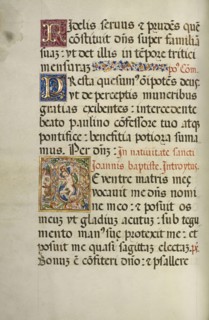 Fidelis seruus & prudẽs quẽ
cõstituit dñs super familiã
suaʒ: vt det illis in tẽpore tritici
mensuraʒ põ Com̃.
Presta quesumꝰ oĩpotẽs deus
vt de perceptis muneribus
gratias exibentes: intercedente
beato paulino cõfessore tuo atqʒ
pontifice: benefitia potiora suma
mus. Per dñʒ: In natiuitate sancti
Ioannis baptiste. Introytus.
De ventre matris meę
vocauit me dñs nomi
ne meo: & posuit os
meuʒ vt gladius acutus: sub tegu
mento manꝰ suę protexit me: et
posuit me quasi sagittaʒ electaʒ. p̃s
Bonuʒ ẽ cõfiteri dño: & psallere